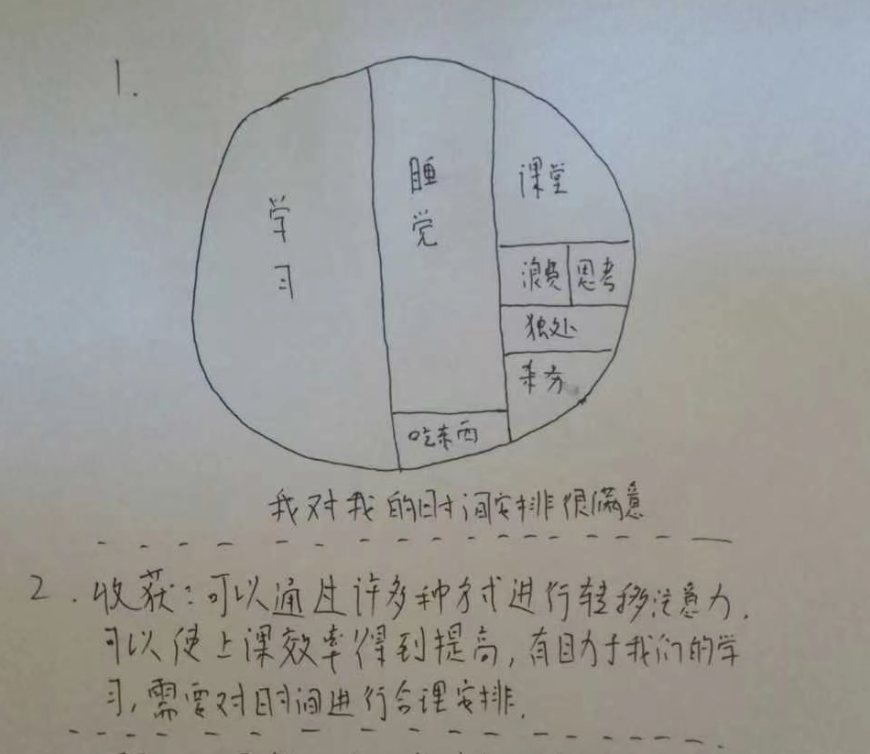 1.
学习
睡觉
课堂
浪费 思考
独处
吃东西
我对我的时间安排很满意
2. 收获:可以通过许多种方式进行转移注意力.
可以使上课效率得到提高,有助于我们的学
习,需要对时间进行合理安排.